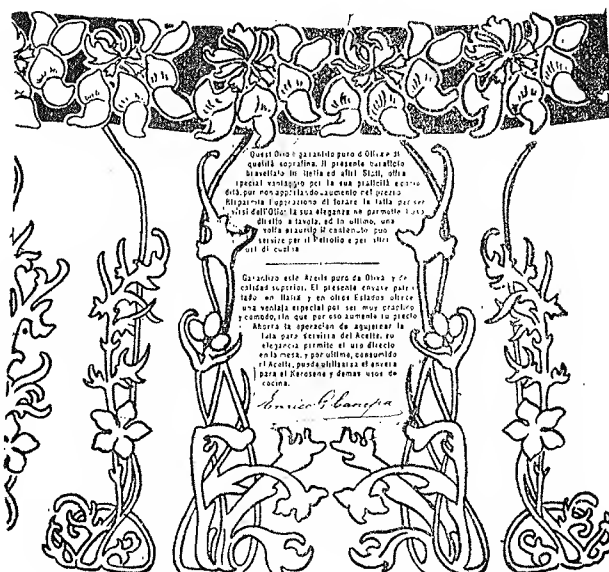 Quest'Olio è garantito puro d'Oliva e di
qualità soprafina. Il presente barattolo
brevettato in Italia ed altri Stati, offre
special vantaggio per la sua praticità e como-
dità, pur non apportando aumento nel prezzo.
Risparmia l'operazione di forare la latta per ser-
virsi dell'Olio; la sua eleganza ne permette l'uso
diretto a tavola, ed in ultimo, una
volta esaurito il contenuto può
servire per il Petrolio e per altri
usi di cucina.
Garantizo este Aceite puro de Oliva y de
calidad superior. El presente envase paten-
tado en Italia y en otros Estados ofrece
una ventaja especial por ser muy práctico
y cómodo, sin que por eso aumente su precio
Ahorra la operación de agujerear la
lata para servirse del Aceite, su
elegancia permite el uso directo
en la mesa, y por último, consumido
el Aceite, puede utilizarse el envase
para el Kerosene y demás usos de
cocina.
Enrico G. Canepa